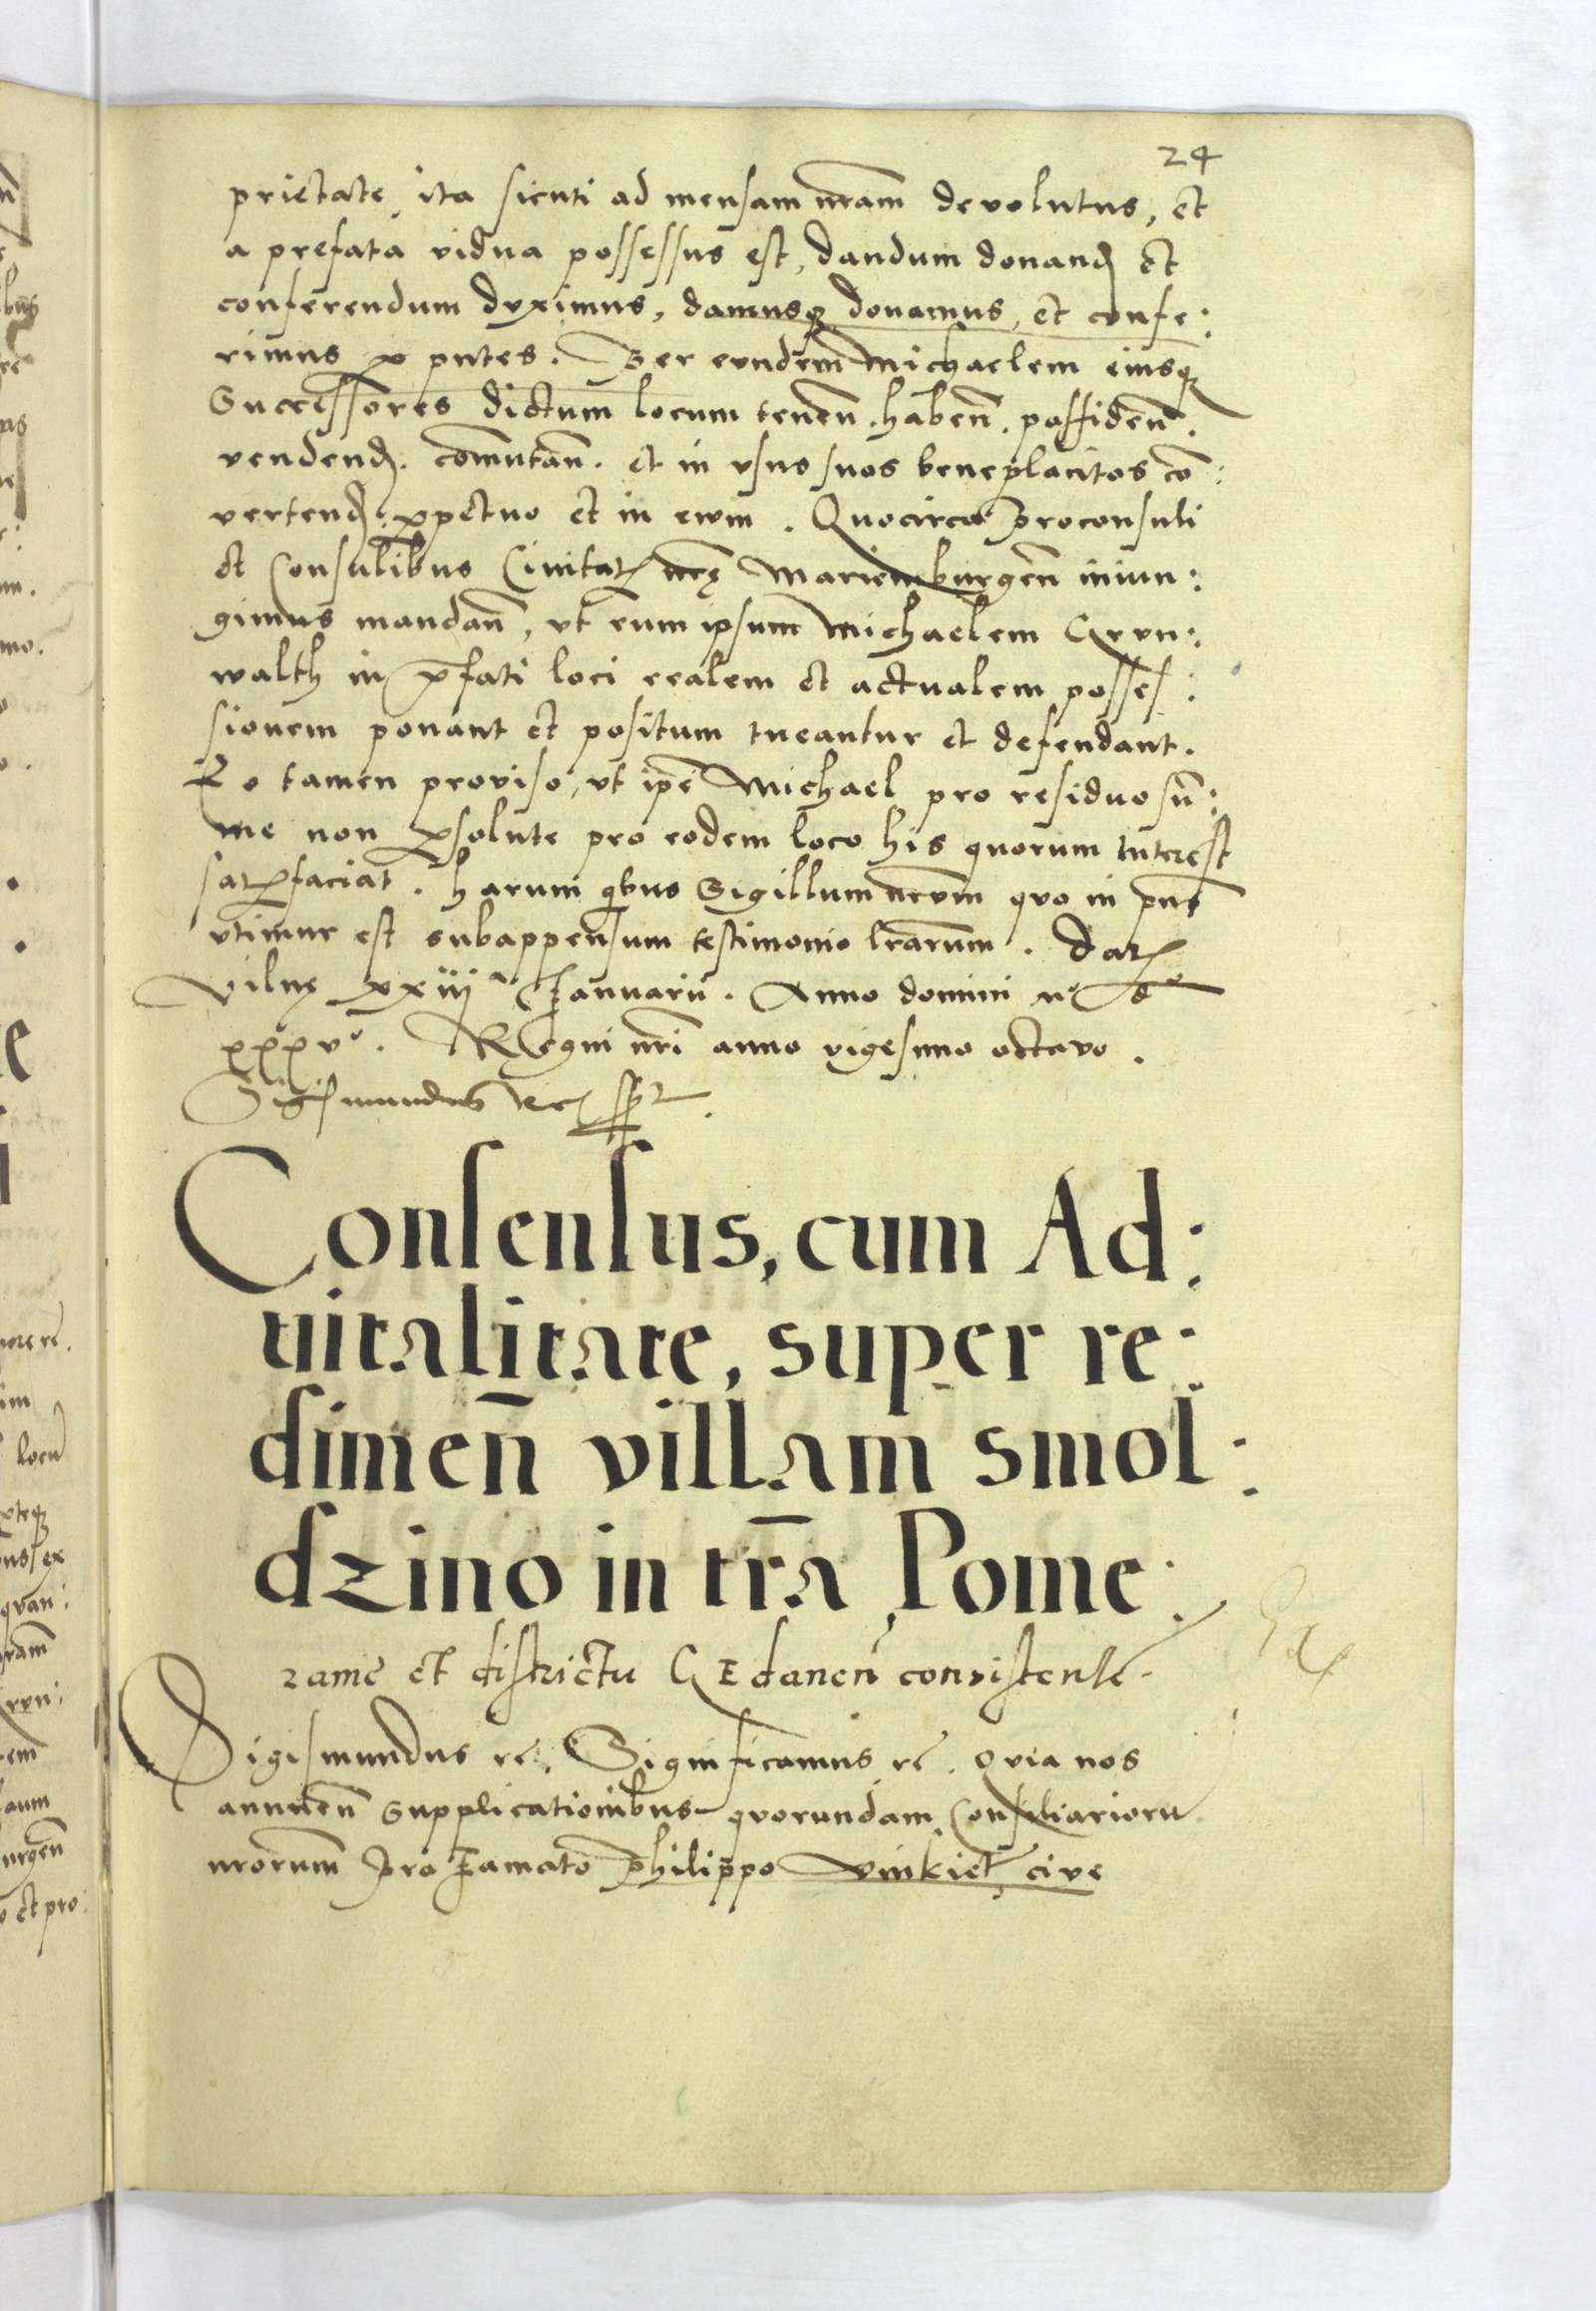 24
prietate, ita sicuti ad mensam nr̄am devolutus, et
a prefata vidua possessus est, dandum donand et
conferendum duximus, damusq donamus, et confe:
rimus p pn̄tes. Per eundem Michaelem eiusq
Successores dictum locum tenen̄. haben̄. possiden̄.
vendend. com̄utan̄. et in usus suos beneplacitos cō:
vertend. ppetuo et in evum. Quocirca Proconsuli
et Consulibus Civitat nr̄ę Marienburgen̄ iniun:
gimus mandan̄, ut eum ipsum Michaelem Grun:
walth in p̄fati loci realem et actualem posses:
sionem ponant et positum tueantur et defendant.
Eo tamen proviso, ut ip̄e Michael pro residuo sū:
me non psolute pro eodem loco his quorum interest
satisfaciat. Harum qbus Sigillum nr̄um quo in p̄ns
utimur est subappensum testimonio lr̄arum. Dat
Vilnę xxiij Januarii. Anno domini Mº dº
xxxvº. Regni nr̄i anno vigesimo octavo.
Sigismundus Rex s̄s̄t.
Consensus, cum Ad:
vitalitate, super re:
dimen̄ villam smol:
dzino in tr̄a Pome:
ranie et districtu Gedanen̄ consisten̄.
Sigismundus rē. Significamus rē. Quia nos
annuen̄ supplicationibus quorundam Consiliarioru
nr̄orum pro famato Philippo Vinkiet, cive